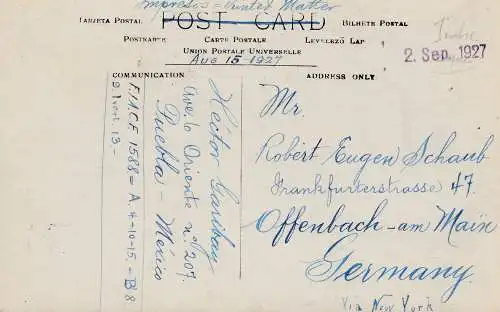 Impresos = Printed Matter
POST CARD
TARJETA POSTAL
BILHETE POSTAL
POSTKARTE
CARTE POSTALE
LEVELEZŐ LAP
UNION POSTALE UNIVERSELLE
Aug 15-1927
2. Sep. 1927
COMMUNICATION
ADDRESS ONLY
Héctor Garibay
Ave. 10 Oriente n.º 207.
Puebla - México
F.I.A.C.F. 1588 = A. 4-10-15. - B 8
Mr.
Robert Eugen Schaub
Frankfurterstrasse 47
Offenbach-am Main
Germany.
Via New York